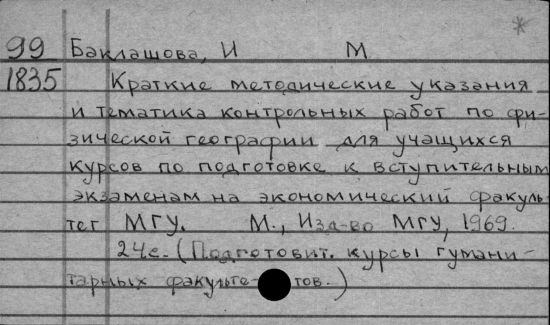 99 Баклашова, И М
1835 Краткие методические указания
и тематика контрольных работ по фи-
зической географии для учащихся
курсов по подготовке к вступительным
экзаменам на экономический факуль-
тет МГУ. М., Изд-во МГУ, 1969.
24с. (Подготовит. курсы гумани-
тарных факульте- тов.)